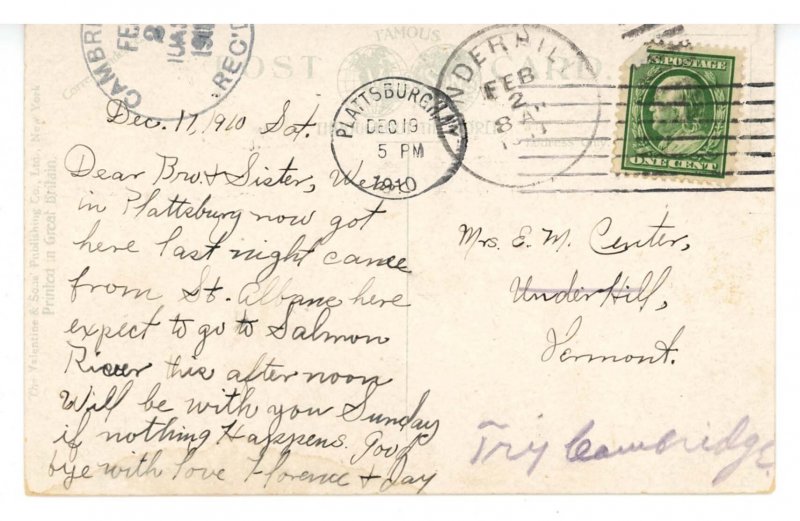 CAMBRI
FEB
2
10AM
1911
REC'D
FAMOUS
POST CARD.
UNDERHILL
FEB
2
8 A
1911
PLATTSBURGH, N.Y.
DEC 19
5 PM
1910
U.S. POSTAGE
ONE CENT
The Valentine & Sons' Publishing Co., Ltd., New York
Printed in Great Britain.
Dec. 17, 1910 Sat.
Dear Bro. & Sister, We are
in Plattsburg now got
here last night came
from St. Albans here
expect to go to Salmon
River this afternoon
Will be with you Sunday
if nothing Happens. Good
bye with love Florence & Jay
Mrs. E. M. Center,
Underhill,
Vermont.
Try Cambridge